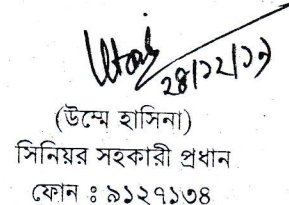 ২৪/১২/১৭
(উম্মে হাসিনা)
সিনিয়র সহকারী প্রধান
ফোন ঃ ৯১২৭১৩৪